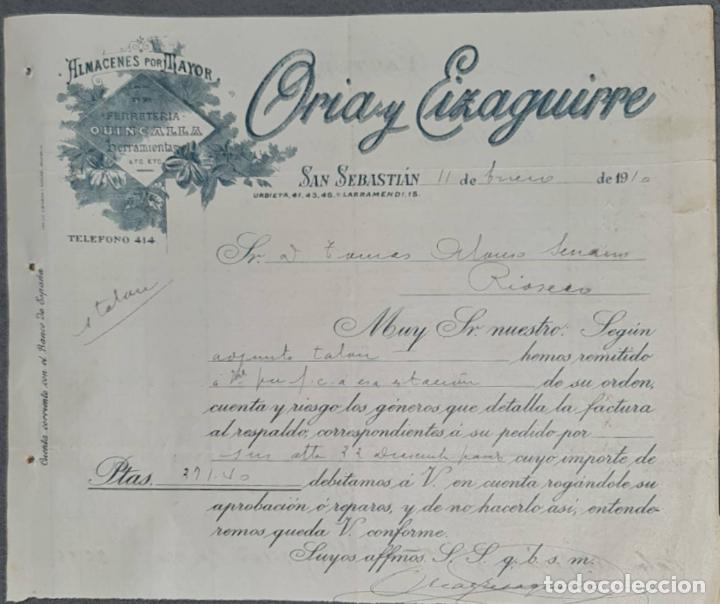 ALMACENES POR MAYOR
DE
FERRETERIA
QUINCALLA
Herramientas
ETC. ETC.
TELEFONO 414
Oria y Eizaguirre
SAN SEBASTIÁN 11 de Enero de 1910
URBIETA, 41, 43, 45, Y LARRAMENDI, 15.
Sr. D Tomas Alonso Serrano
Rioseco
1 talon
Cuenta corriente con el Banco de España
Muy Sr. nuestro: Según
adjunto talon hemos remitido
á Vd. por f.c. á esa estación de su orden,
cuenta y riesgo los géneros que detalla la factura
al respaldo, correspondientes á su pedido por
su atta 22 cuyo importe de
Ptas. 271.40 debitamos á V. en cuenta rogándole su
aprobación ó reparos, y de no hacerlo así, entende-
remos queda V. conforme.
Suyos affmos. S. S. q. b. s. m.
todocoleccion.net